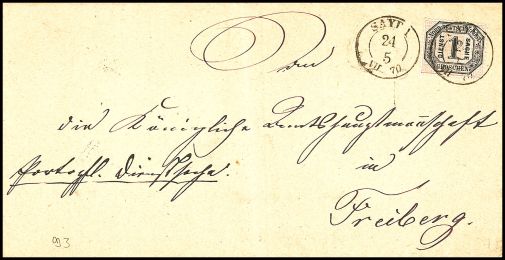 SAYDA
24
5
VI. 70.
DIENST SACHE
1
GROSCHEN
An
die Königliche Amtshauptmannschaft
Portopfl. Dienstsache.
in
Freiberg.
93